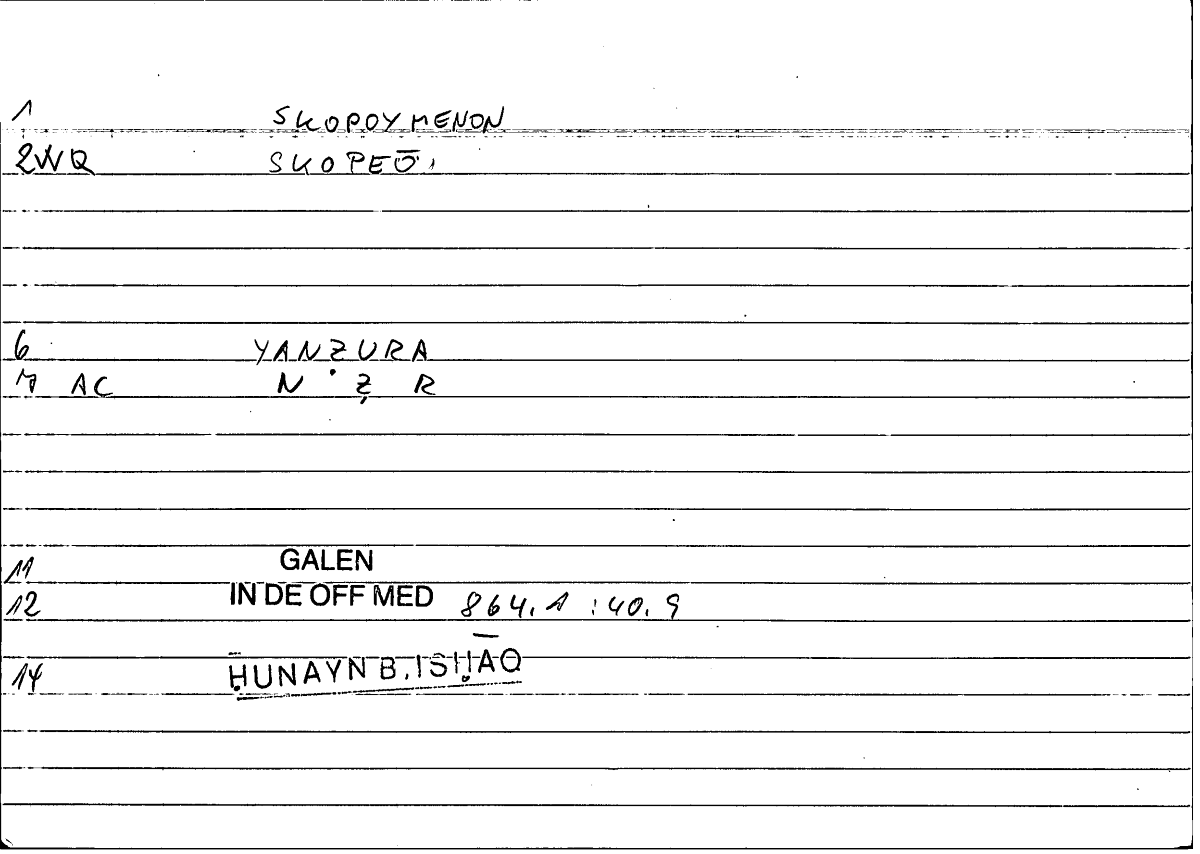 1 SKOPOYMENON
2WQ SKOPEŌ,
6 YANẒURA
7 AC N Ẓ R
11 GALEN
12 IN DE OFF MED 864.1 :40.9
14 ḤUNAYN B. ISḤĀQ